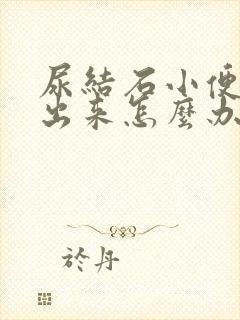 尿結石小便
出来怎麼办
於丹